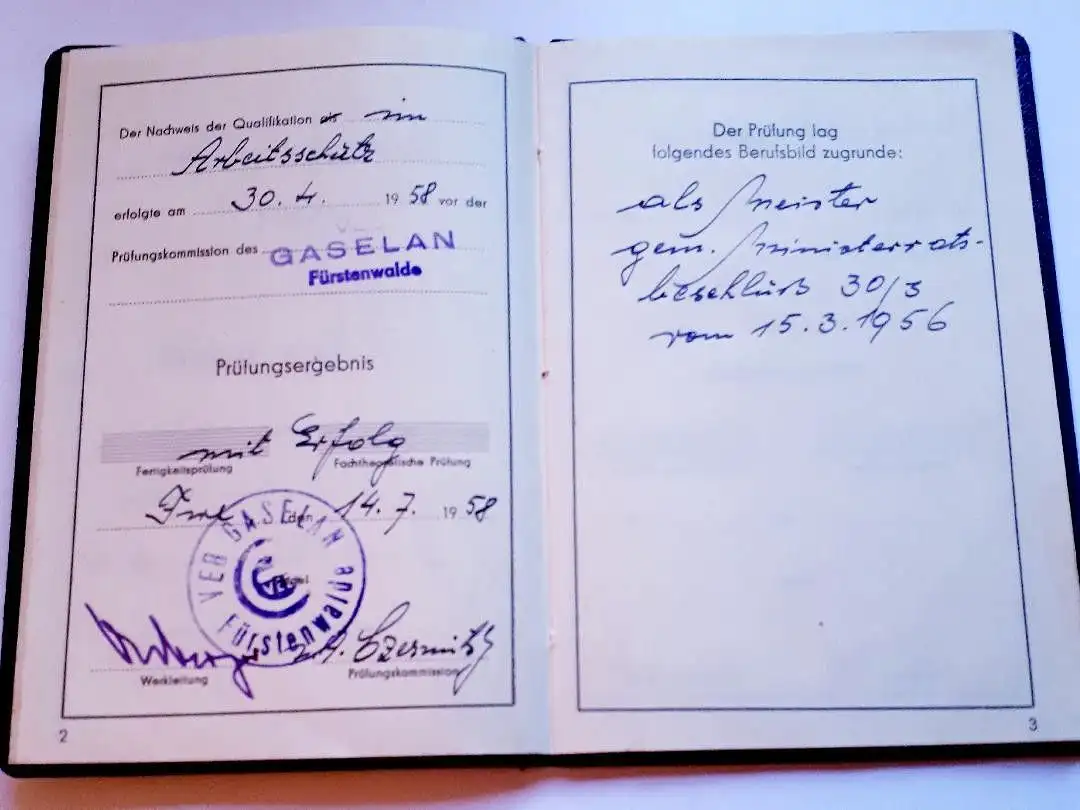 Der Nachweis der Qualifikation als im
Arbeitsschutz
erfolgte am 30. 4. 1958 vor der
Prüfungskommission des GASELAN
Fürstenwalde
Prüfungsergebnis
mit Erfolg
Fertigkeitsprüfung Fachtheoretische Prüfung
Fwe den 14. 7. 1958
VEB GASELAN
Fürstenwalde
Siegel
Werkleitung Prüfungskommission
2
Der Prüfung lag
folgendes Berufsbild zugrunde:
als Meister
gem. Ministerrats-
beschluß 30/3
vom 15.3.1956
3